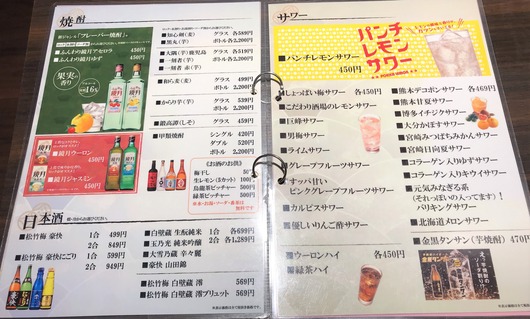 焼酎
新ジャンル「フレーバー焼酎」
■ふんわり鏡月アセロラ 450円
■ふんわり鏡月ゆず 450円
果実の香り
16%
■鏡月ウーロン 450円
■鏡月ジャスミン 450円
■知心剣(麦) グラス 各589円
■黒丸(芋) ボトル 各2,200円
■大隅(芋)鹿児島 グラス 各519円
■一刻者(芋) ボトル 各2,200円
■一刻者 赤(芋)
■和ら麦(麦) グラス 499円
ボトル 2,200円
■からり芋(芋) グラス 399円
ボトル 2,200円
■鍛高譚(しそ) グラス 459円
ボトル 2,200円
■甲類焼酎 シングル 420円
ダブル 520円
ボトル 2,200円
《お酒のお供》
梅干し 50円
生レモン(5カット) 100円
烏龍茶ピッチャー 500円
緑茶ピッチャー 500円
無料です
日本酒
■松竹梅 豪快 1合 499円
2合 849円
■松竹梅 豪快にごり 1合 599円
2合 949円
■白壁蔵 生酛純米 1合 各699円
■玉乃光 純米吟醸 2合 各1,289円
■大雪乃蔵 辛々麗
■豪快 山田錦
■松竹梅 白壁蔵 澪 569円
■松竹梅 白壁蔵 澪ブリュット 569円
サワー
パンチレモンサワー
■パンチレモンサワー 450円
■しょっぱい梅サワー 各450円
■こだわり酒場のレモンサワー
■巨峰サワー
■男梅サワー
■ライムサワー
■グレープフルーツサワー
■すッパ甘い
ピンクグレープフルーツサワー
■カルピスサワー
■優しいりんご酢サワー
■ウーロンハイ 各450円
■緑茶ハイ
■熊本デコポンサワー 各469円
■熊本甘夏サワー
■博多イチジクサワー
■大分かぼすサワー
■宮崎みつばちみかんサワー
■宮崎日向夏サワー
■コラーゲン入りゆずサワー
■コラーゲン入りキウイサワー
■元気みなぎる系
(それっぽいの入ってます!)
バリキングサワー
■北海道メロンサワー
■金黒タンサン(芋焼酎) 470円